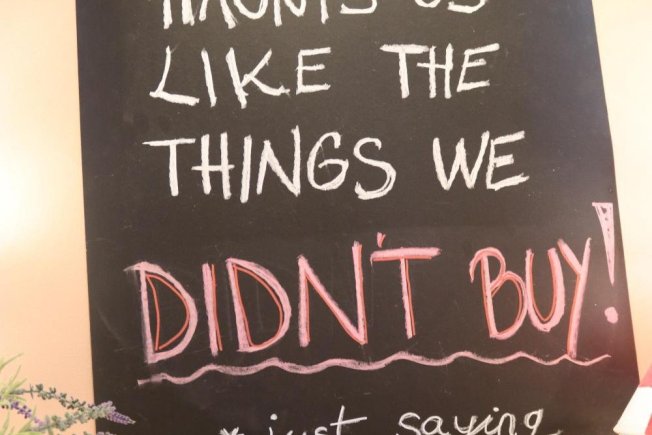 HAUNTS US
LIKE THE
THINGS WE
DIDN'T BUY!
* just saying